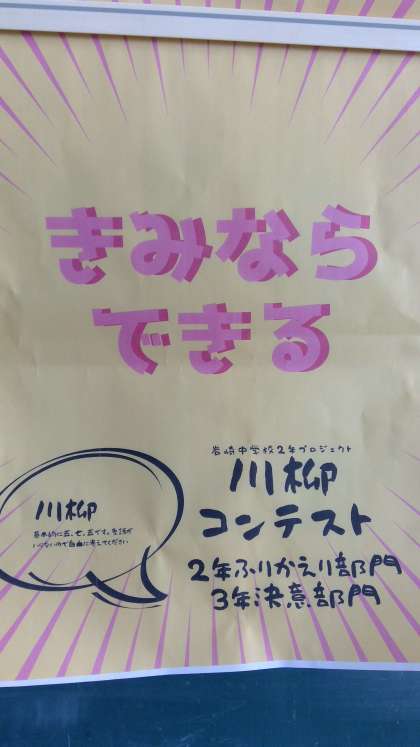 きみなら
できる
岩崎中学校2年プロジェクト
川柳
コンテスト
2年ふりかえり部門
3年決意部門
川柳
基本的に五、七、五です。季語が
いらないので自由に考えてください